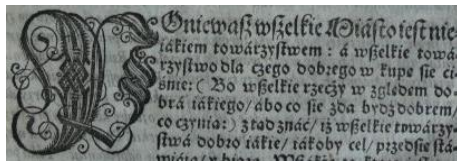 POniewasz wßelkie Miásto iest nie-
iákiem towárzystwem : á wßelkie towá-
rzystwo dla czego dobrego w kupę sie ci-
śnie: ( Bo wßelkie rzecży w zględem do-
brá iákiego / ábo co sie zda bydź dobrem /
co cżynią : ) ztąd znáć / iż wßelkie towárzy-
stwá dobro iákie / iákoby cel / przedsię stá-